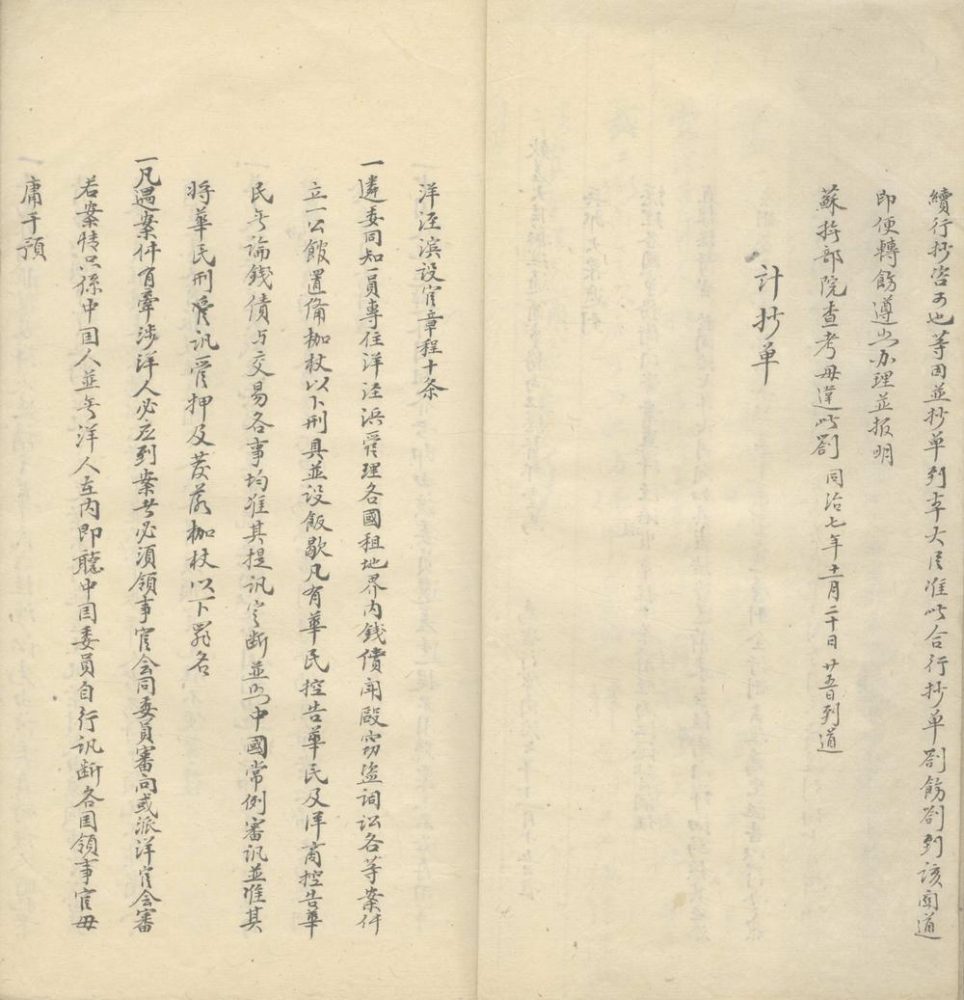 續行抄咨可也等因並抄单到本大臣准此合行抄单劄飭劄到該関道
即便轉飭遵照办理並报明
蘇撫部院查考毋違此劄 同治七年十一月二十日 廿五日到道
計抄单
洋泾滨设官章程十条
一遴委同知一員專住洋泾浜管理各國租地界内钱债闹殴窃盗词讼各等案件
立一公館置備枷杖以下刑具並设飯歇凡有華民控告華民及洋商控告華
民无論錢債与交易各事均准其提讯定断並照中國常例審讯並准其
将華民刑讯管押及发落枷杖以下罪名
一凡遇案件有牽涉洋人必应到案者必须領事官会同委員審问或派洋官会審
若案情只係中囯人並无洋人在内即聽中囯委員自行讯断各囯領事官毋
庸干預